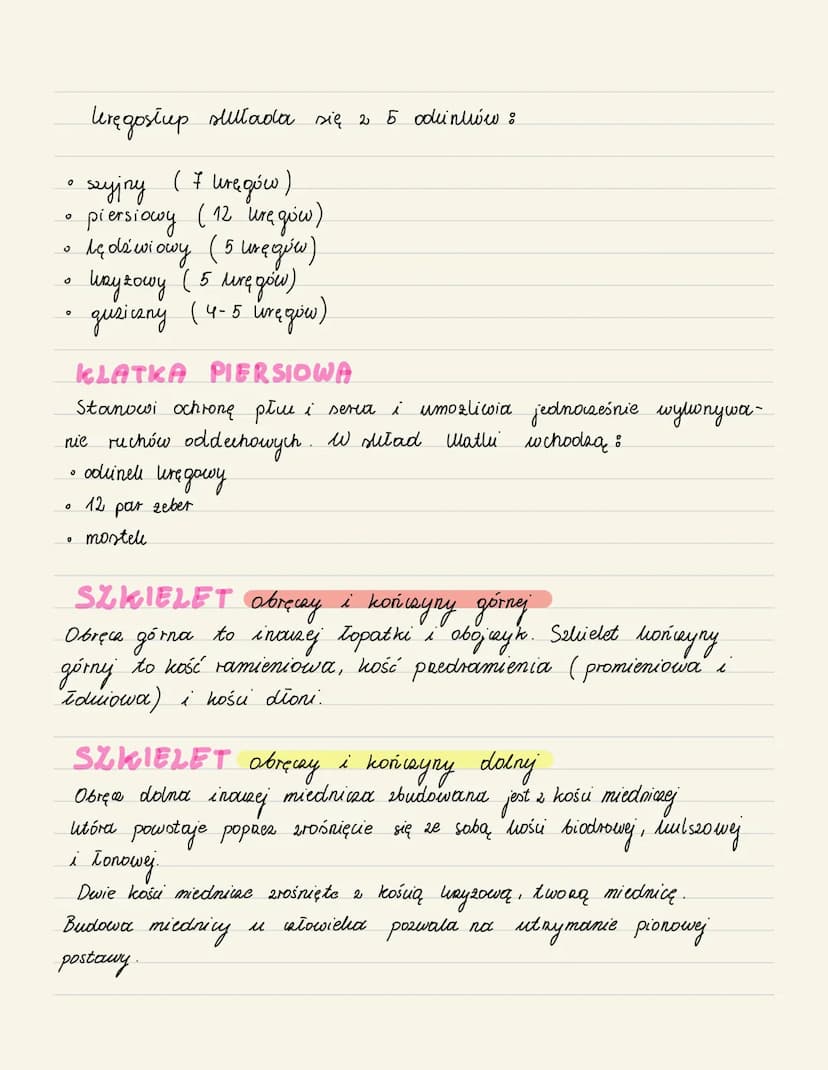 Kręgosłup składa się z 5 odcinków :
• szyjny ( 7 kręgów )
• piersiowy ( 12 kręgów)
• lędźwiowy ( 5 kręgów)
• krzyżowy ( 5 kręgów)
• guziczny ( 4-5 kręgów)
KLATKA PIERSIOWA
Stanowi ochronę płuc i serca i umożliwia jednocześnie wykonywa-
nie ruchów oddechowych. W skład klatki wchodzą :
• odcinek kręgowy
• 12 par żeber
• mostek
SZKIELET obręczy i kończyny górnej
Obręcz górna to inaczej łopatki i obojczyk. Szkielet kończyny
górnj to kość ramieniowa, kość przedramienia ( promieniowa i
łokciowa) i kości dłoni.
SZKIELET obręczy i kończyny dolnj
Obręcz dolna inaczej miednicza zbudowana jest z kości miedniczej
która powstaje poprzez zrośnięcie się ze sobą kości biodrowej, kulszowej
i łonowej.
Dwie kości miednicze zrośnięte z kością krzyżową, tworzą miednicę.
Budowa miednicy u człowieka pozwala na utrzymanie pionowej
postawy.